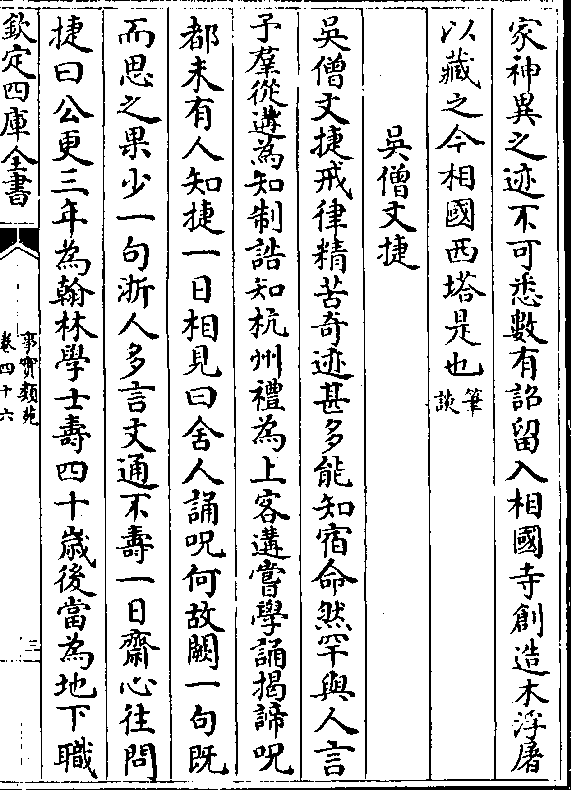 家神異之迹不可悉數有詔留入相國寺創造木浮屠
以藏之今相國西塔是也筆談
吳僧文捷
吳僧文捷戒律精苦奇迹甚多能知宿命然罕與人言
予羣從遘為知制誥知杭州禮為上客遘嘗學誦揭諦呪
都未有人知捷一日相見曰舍人誦呪何故闕一句既
而思之果少一句浙人多言文通不壽一日齋心往問
捷曰公更三年為翰林學士壽四十歲後當為地下職
欽定四庫全書
事實類苑
卷四十六
三